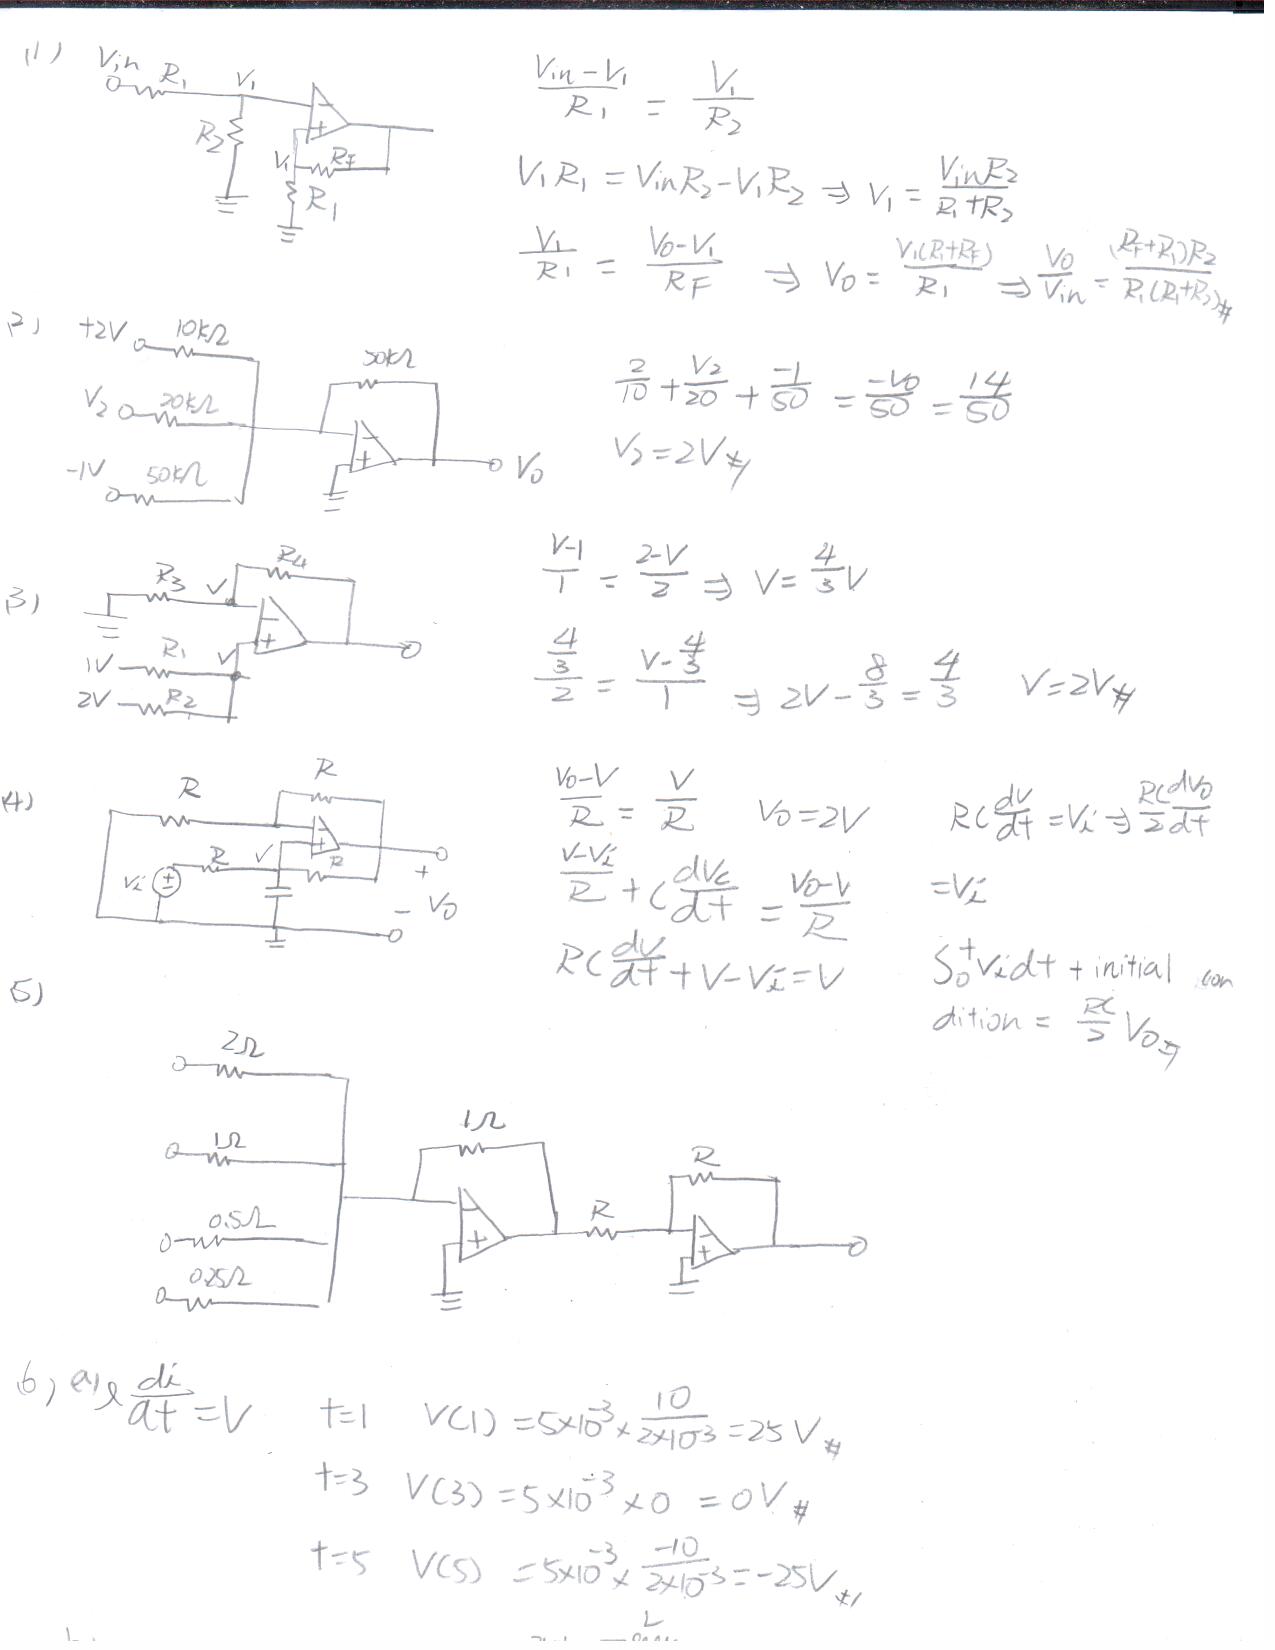 (1)
Vin R1 V1
R2
V1 RF
R1
(Vin - V1)/R1 = V1/R2
V1R1 = VinR2 - V1R2 ⇒ V1 = VinR2/(R1+R2)
V1/R1 = (Vo-V1)/RF ⇒ Vo = V1(R1+RF)/R1 ⇒ Vo/Vin = (RF+R1)R2/R1(R1+R2) #
2)
+2V 10kΩ
V2 20kΩ
-1V 50kΩ
50kΩ
Vo
2/10 + V2/20 + -1/50 = -Vo/50 = 14/50
V2 = 2V #
3)
R3 V R4
1V R1 V
2V R2
(V-1)/1 = (2-V)/2 ⇒ V = 4/3 V
(4/3)/2 = (V - 4/3)/1 ⇒ 2V - 8/3 = 4/3 V = 2V #
4)
R R
Vi R V R
+
- Vo
(Vo-V)/R = V/R Vo = 2V
(V-Vi)/R + C dVc/dt = (Vo-V)/R
RC dv/dt + V - Vi = V
RC dv/dt = Vi ⇒ RC/2 dVo/dt
= Vi
∫0^t Vi dt + initial con
dition = RC/2 Vo #
5)
2Ω
1Ω
0.5Ω
0.25Ω
1Ω
R R
6) a) L di/dt = V t=1 V(1) = 5×10^-3 × 10/2×10^-3 = 25V #
t=3 V(3) = 5×10^-3 × 0 = 0V #
t=5 V(5) = 5×10^-3 × -10/2×10^-3 = -25V #